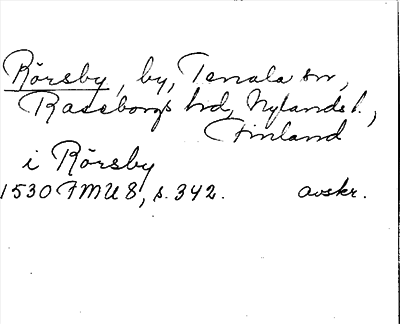 Rörsby, by, Tenala sn,
Raseborgs hrd, Nylands l.,
Finland
i Rörsby
1530 FMU 8, s. 342. avskr.